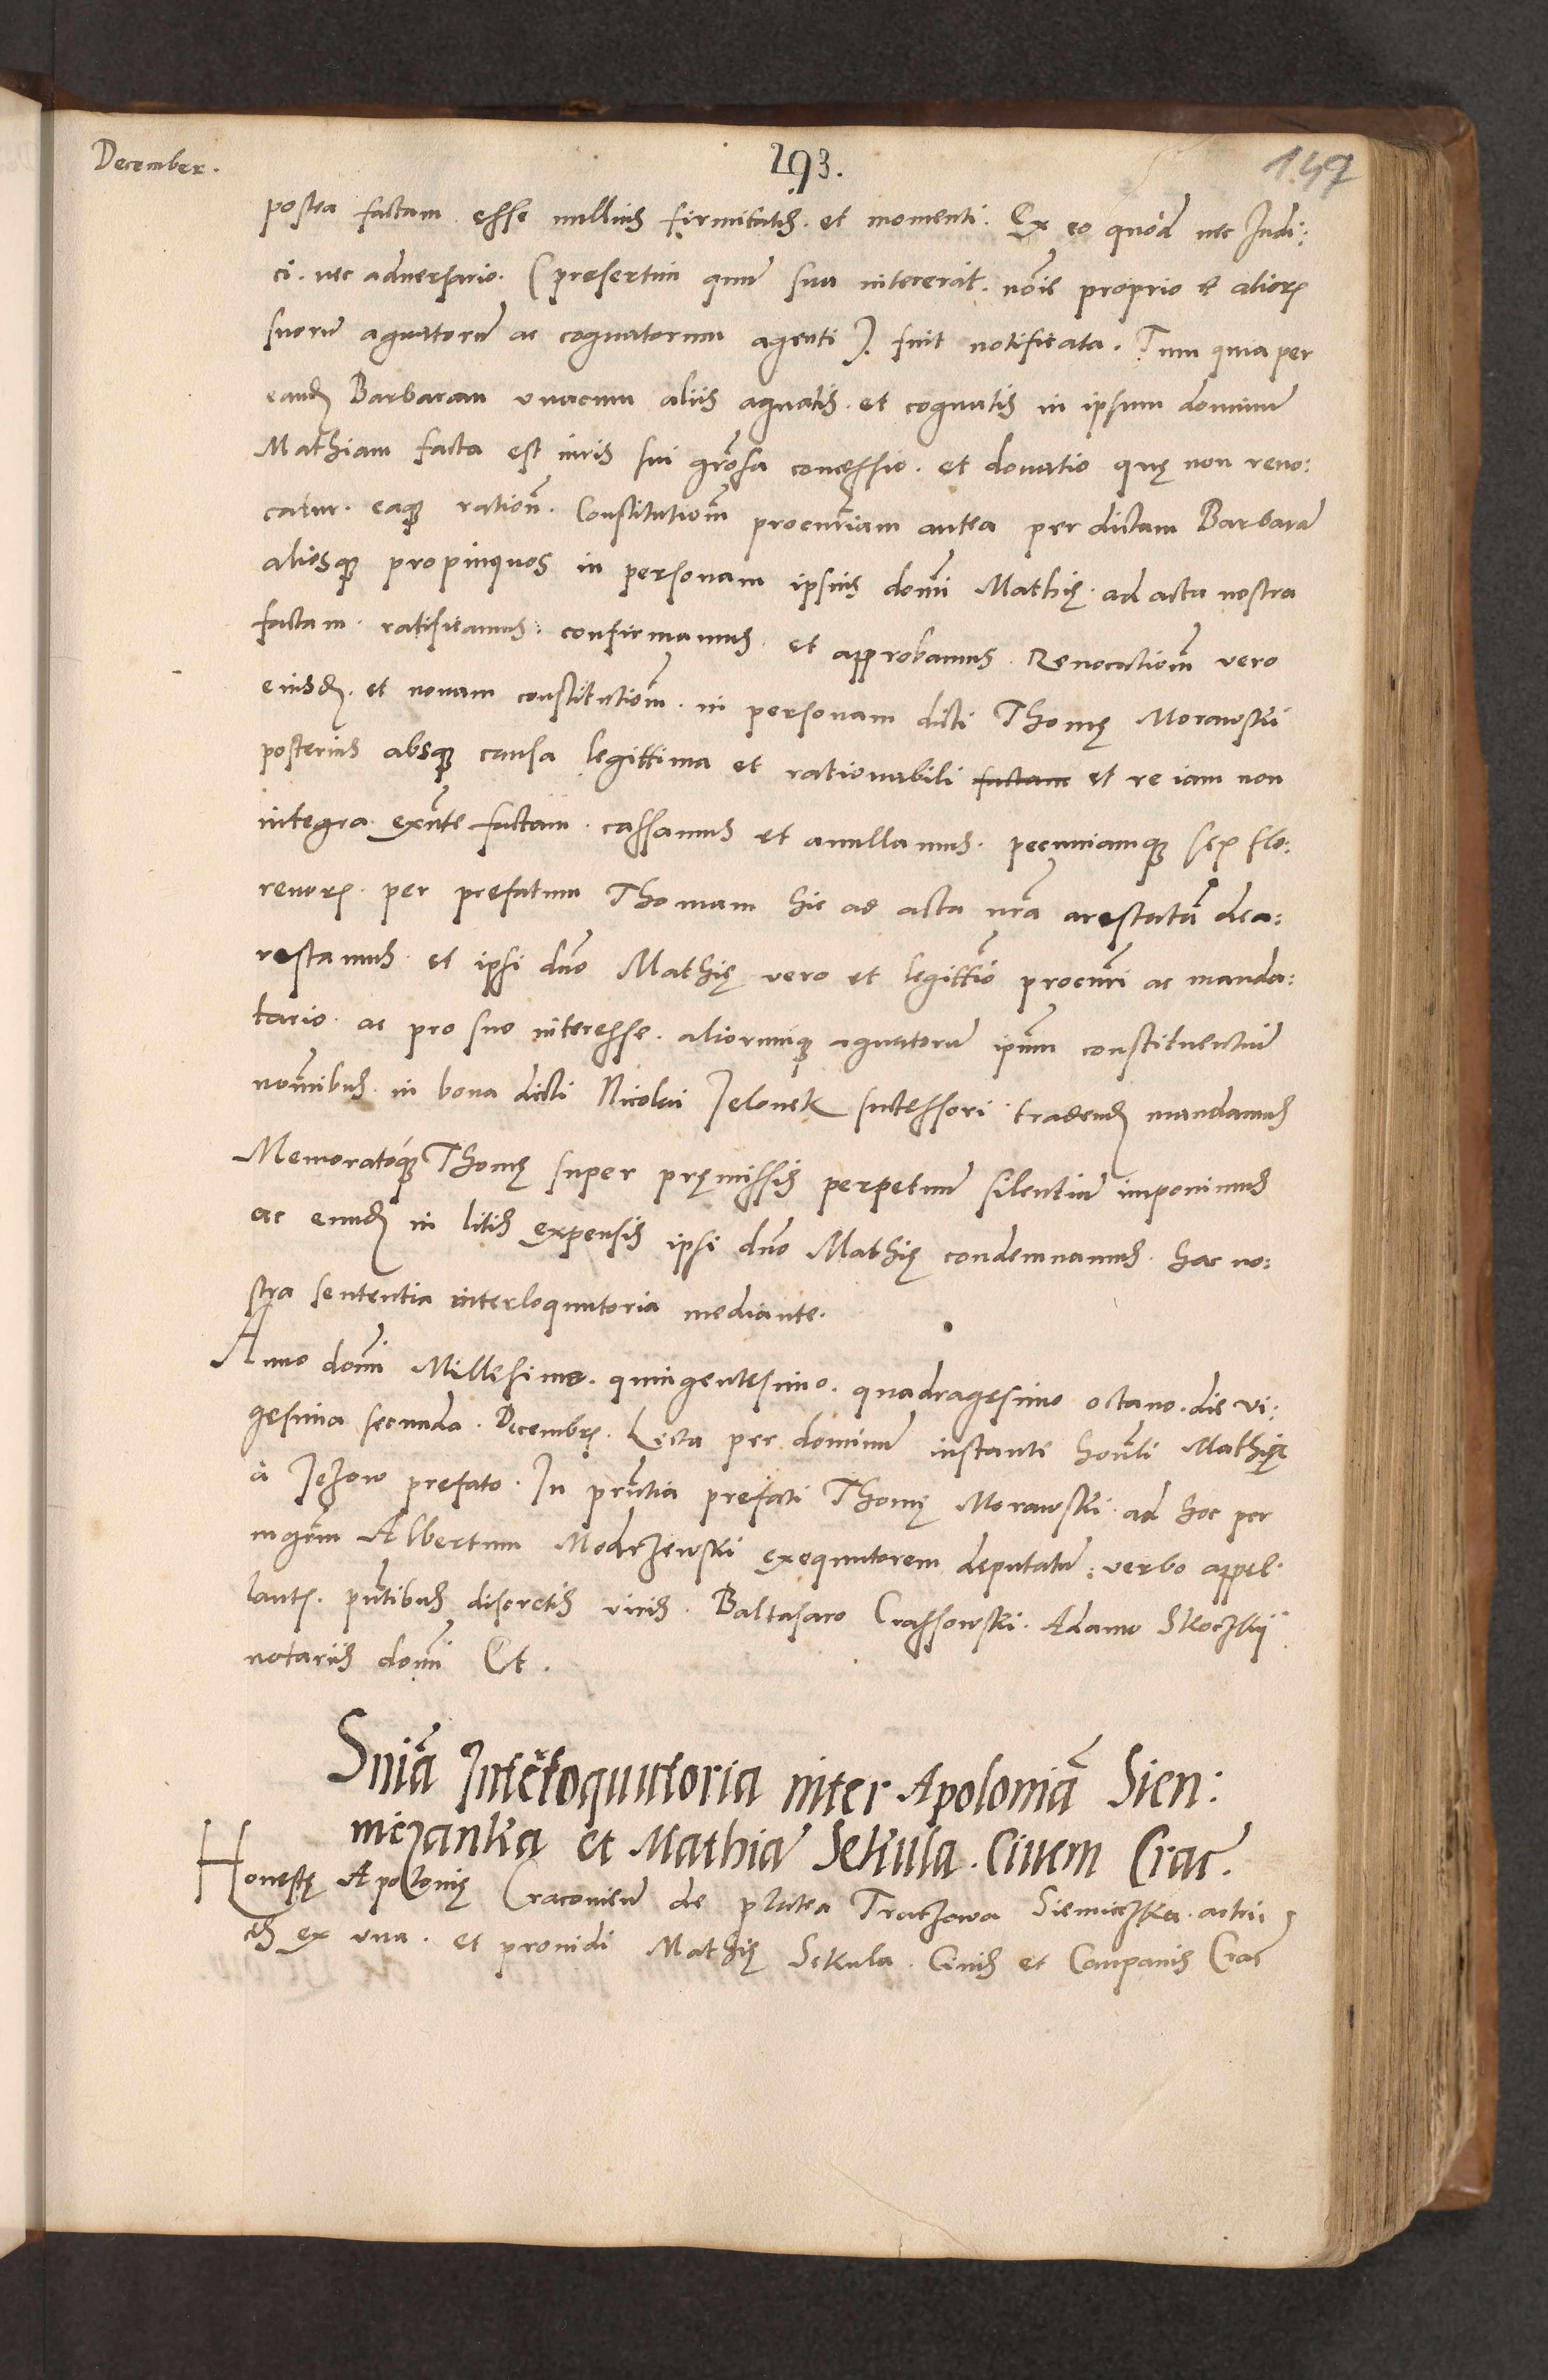 December.
293.
147
postea factam esse nullius firmitatis. et momenti. Ex eo quòd nec Judi:
ci. nec aduersario. (presertim quum sua intererat. noīe proprio et alioꝝ
suorū agnatorū ac cognatorum agenti). fuit notificata. Tum quia per
eandē Barbaram vnacum aliis agnatis. et cognatis in ipsum dominū
Mathiam facta est iuris sui grōsa concessio. et donatio quę non reuo:
catur. eaqꝫ rationē. Constitutionē procuratoriam antea per dictam Barbarā
aliosqꝫ propinquos in personam ipsius domī Mathię. ad acta nostra
factam. ratificamus. confirmamus. et approbamus. Reuocationē vero
eiusdē. et nouam constitutionē. in personam dicti Thomę Morawski
posterius absqꝫ causa legittima et rationabili factam et re iam non
integra exñte factam. cassamus et anullamus. pecuniamqꝫ sex flo:
renoꝝ. per prefatum Thomam hic ad acta nrā arestatā dea:
restamus. et ipsi dn̄o Mathię vero et legittīo procuri ac manda:
tario. ac pro suo interesse. aliorumqꝫ agnatorū ipsum constituentiū
nomībus. in bona dicti Nicolai Jelonek successori tradendā mandamus
Memoratóqꝫ Thomę super pręmissis perpetuū silentiū imponimus
ac eundē in litis expensis ipsi dn̄o Mathię condemnamus. hac no:
stra sententia interloquutoria mediante.
Anno domī Millesimo. quingentesimo. quadragesimo octauo. die vi:
gesima secunda. Decembrꝭ. Lecta per dominū instante honēsti Mathię
à Jeżow prefato. In prn̄tia prefati Thomę Morawski. ad hoc per
mgr̄m Albertum Modrzewski exequutorem deputatū: verbo appel:
lantꝭ. pn̄tibus discretis viris. Baltasaro Crassowski. Adamo Skoczky
notariis domī Et.
Sniā Intērloquutoria inter Apoloniā Sien:
niczanka et Mathiā Sekula. Ciuem Crac̄.
Honestę Apolonię Cracouieñ de platea Traczowa Siemiczka. actri
cis ex vna. et prouidi Mathię Sekula. Ciuis et Campanis Crac̄